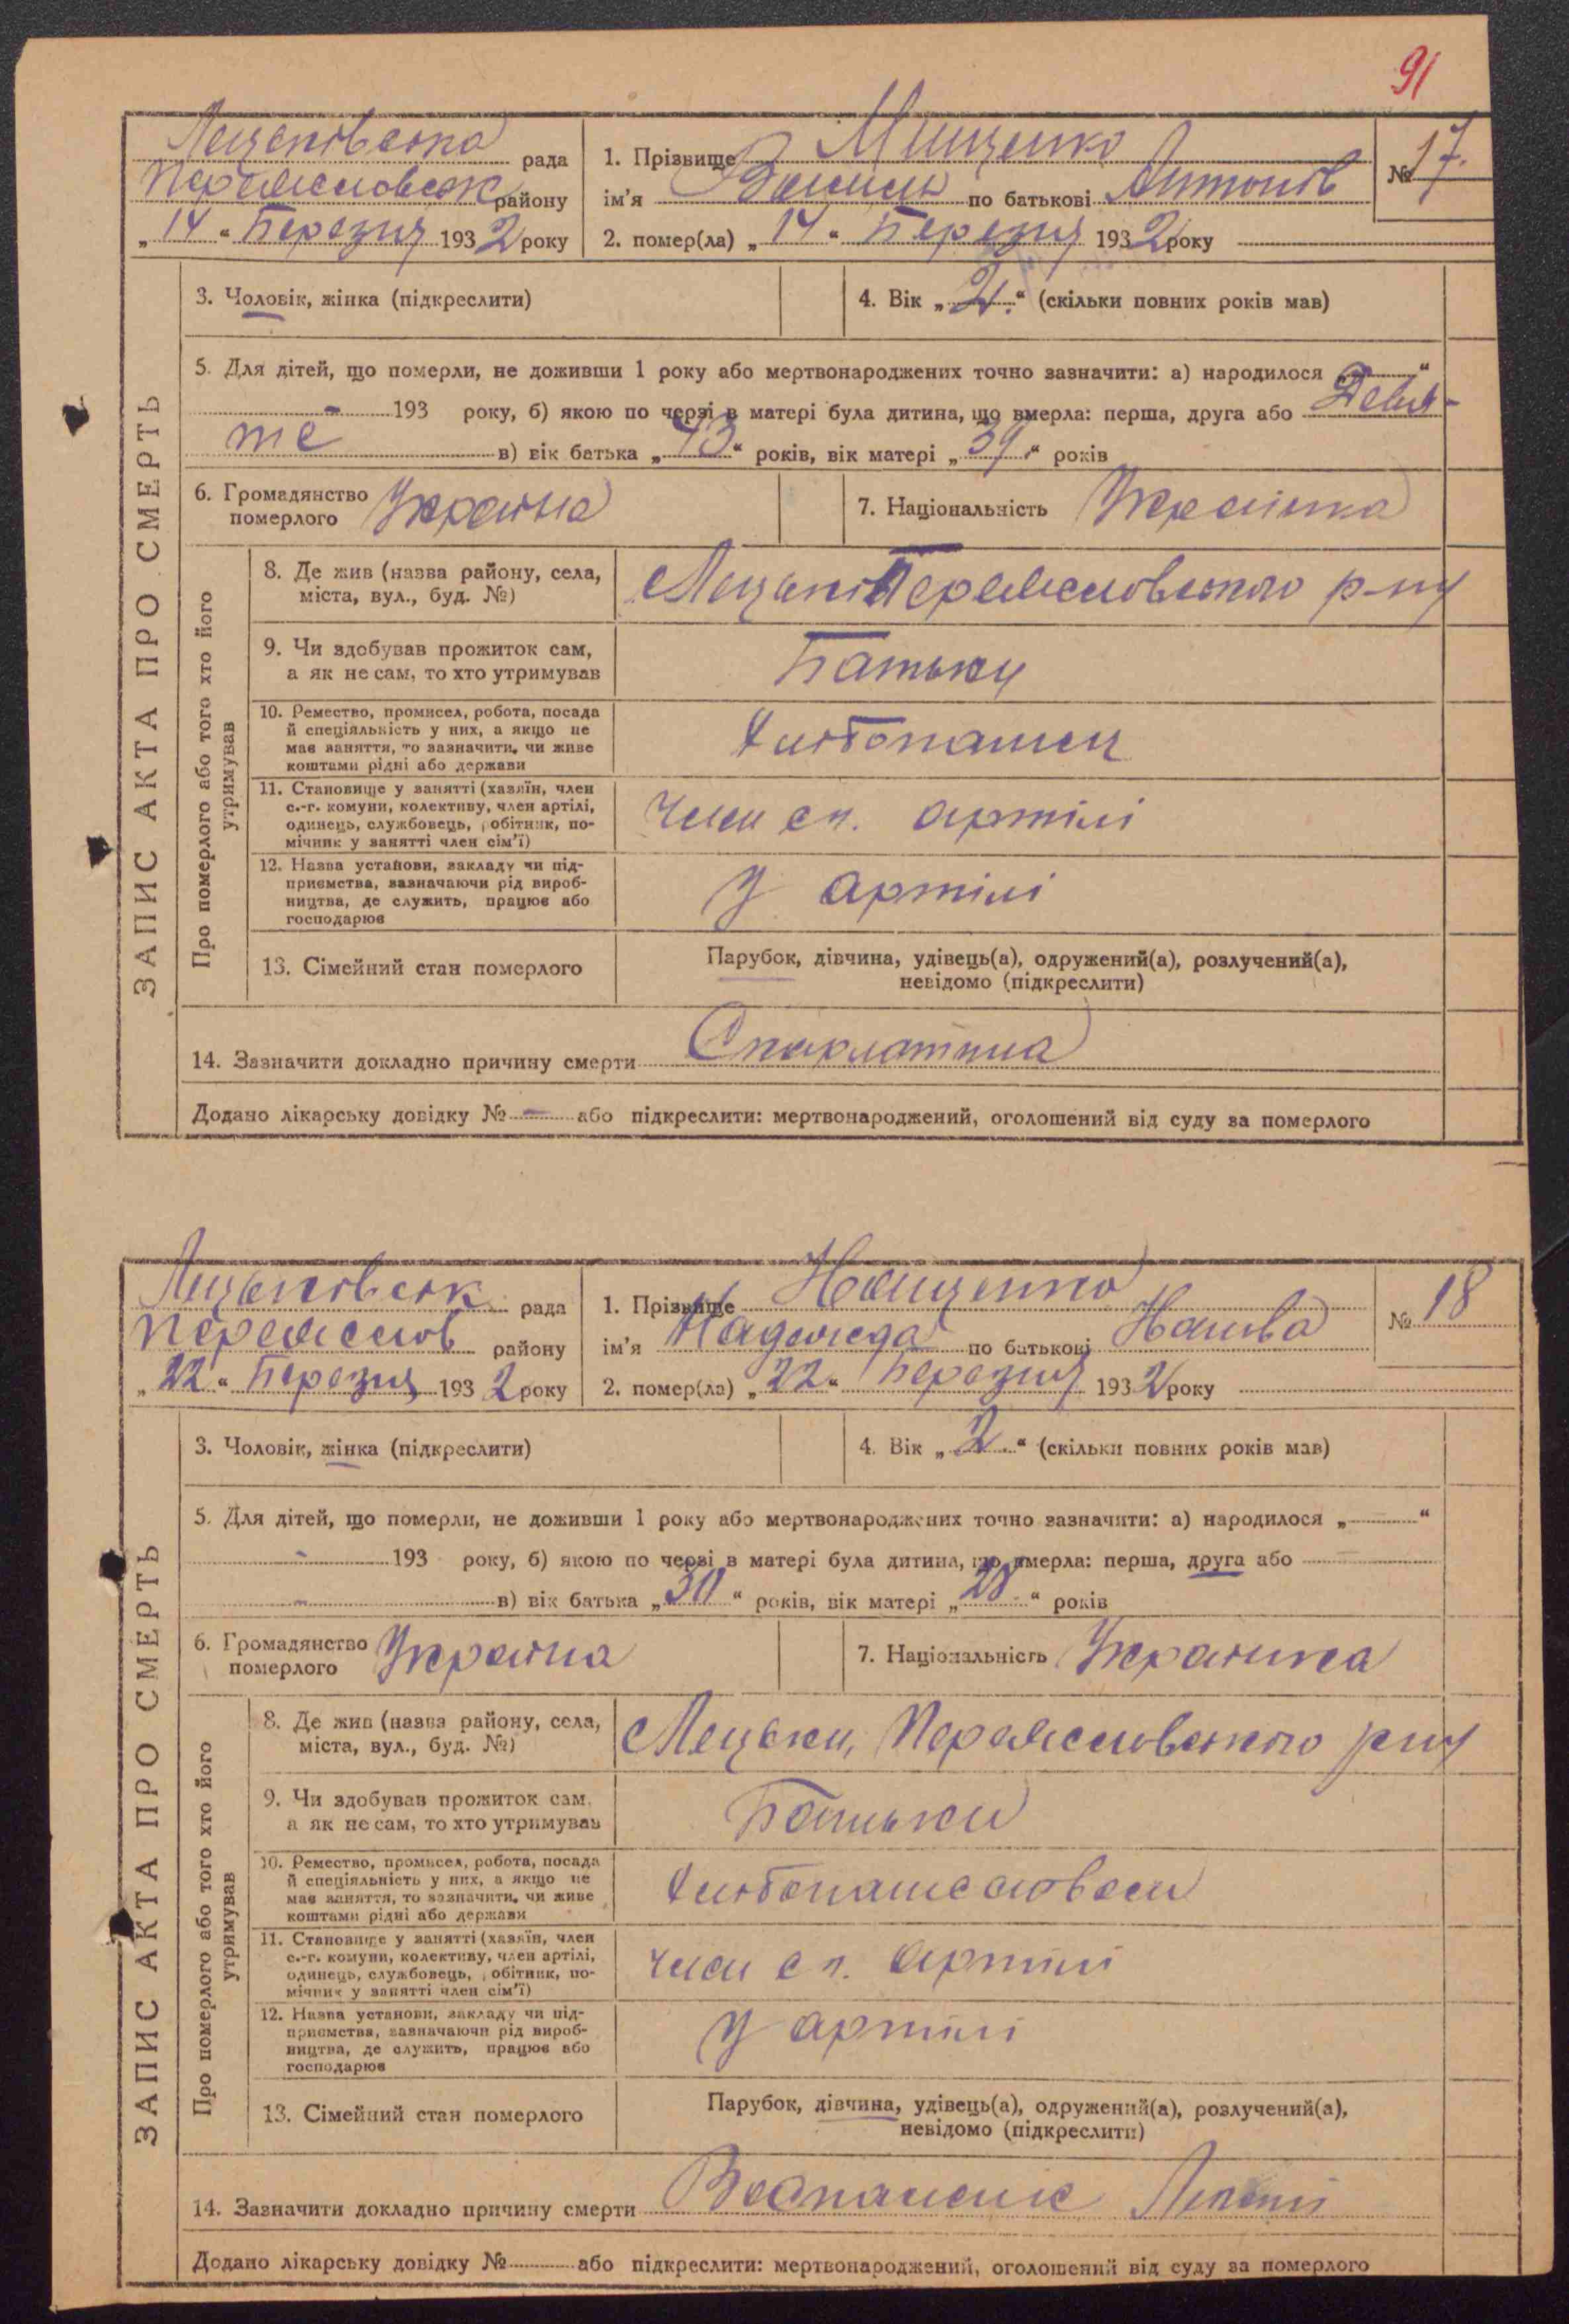 91
рада
району
„14“ Березня 1932 року
1. Прізвище Мищенко
ім'я Василь по батькові Антонів
2. помер(ла) „14“ Березня 1932 року
№ 17.
ЗАПИС АКТА ПРО СМЕРТЬ
3. Чоловік, жінка (підкреслити)
4. Вік „2.“ (скільки повних років мав)
5. Для дітей, що померли, не доживши 1 року або мертвонароджених точно зазначити: а) народилося „ “
- 193 року, б) якою по черзі в матері була дитина, що вмерла: перша, друга або Девя-
те в) вік батька „43“ років, вік матері „39“ років
6. Громадянство
померлого Україна
7. Національність Українка
Про померлого або того хто його
утримував
8. Де жив (назва району, села,
міста, вул., буд. №)
р-ну
9. Чи здобував прожиток сам,
а як не сам, то хто утримував
Батьки
10. Ремество, промисел, робота, посада
й спеціяльність у них, а якщо не
має заняття, то зазначити, чи живе
коштами рідні або держави
11. Становище у занятті (хазяїн, член
с.-г. комуни, колективу, член артілі,
одинець, службовець, робітник, по-
мічник у занятті член сім'ї)
член сг. артілі
12. Назва установи, закладу чи під-
приємства, зазначаючи рід вироб-
ництва, де служить, працює або
господарює
У артілі
13. Сімейний стан померлого
Парубок, дівчина, удівець(а), одружений(а), розлучений(а),
невідомо (підкреслити)
14. Зазначити докладно причину смерти Шкарлатина
Додано лікарську довідку № - або підкреслити: мертвонароджений, оголошений від суду за померлого
рада
району
„22“ Березня 1932 року
1. Прізвище Иащенко
ім'я Надежда по батькові
2. помер(ла) „22“ Березня 1932 року
№ 18
ЗАПИС АКТА ПРО СМЕРТЬ
3. Чоловік, жінка (підкреслити)
4. Вік „2.“ (скільки повних років мав)
5. Для дітей, що померли, не доживши 1 року або мертвонароджених точно зазначити: а) народилося „ “
- 193 року, б) якою по черзі в матері була дитина, що вмерла: перша, друга або
- в) вік батька „30“ років, вік матері „28.“ років
6. Громадянство
померлого Україна
7. Національність Українка
Про померлого або того хто його
утримував
8. Де жив (назва району, села,
міста, вул., буд. №)
р-ну
9. Чи здобував прожиток сам,
а як не сам, то хто утримував
Батьки
10. Ремество, промисел, робота, посада
й спеціяльність у них, а якщо не
має заняття, то зазначити, чи живе
коштами рідні або держави
11. Становище у занятті (хазяїн, член
с.-г. комуни, колективу, член артілі,
одинець, службовець, робітник, по-
мічник у занятті член сім'ї)
член сг. артілі
12. Назва установи, закладу чи під-
приємства, зазначаючи рід вироб-
ництва, де служить, працює або
господарює
У артілі
13. Сімейний стан померлого
Парубок, дівчина, удівець(а), одружений(а), розлучений(а),
невідомо (підкреслити)
14. Зазначити докладно причину смерти
Додано лікарську довідку № або підкреслити: мертвонароджений, оголошений від суду за померлого